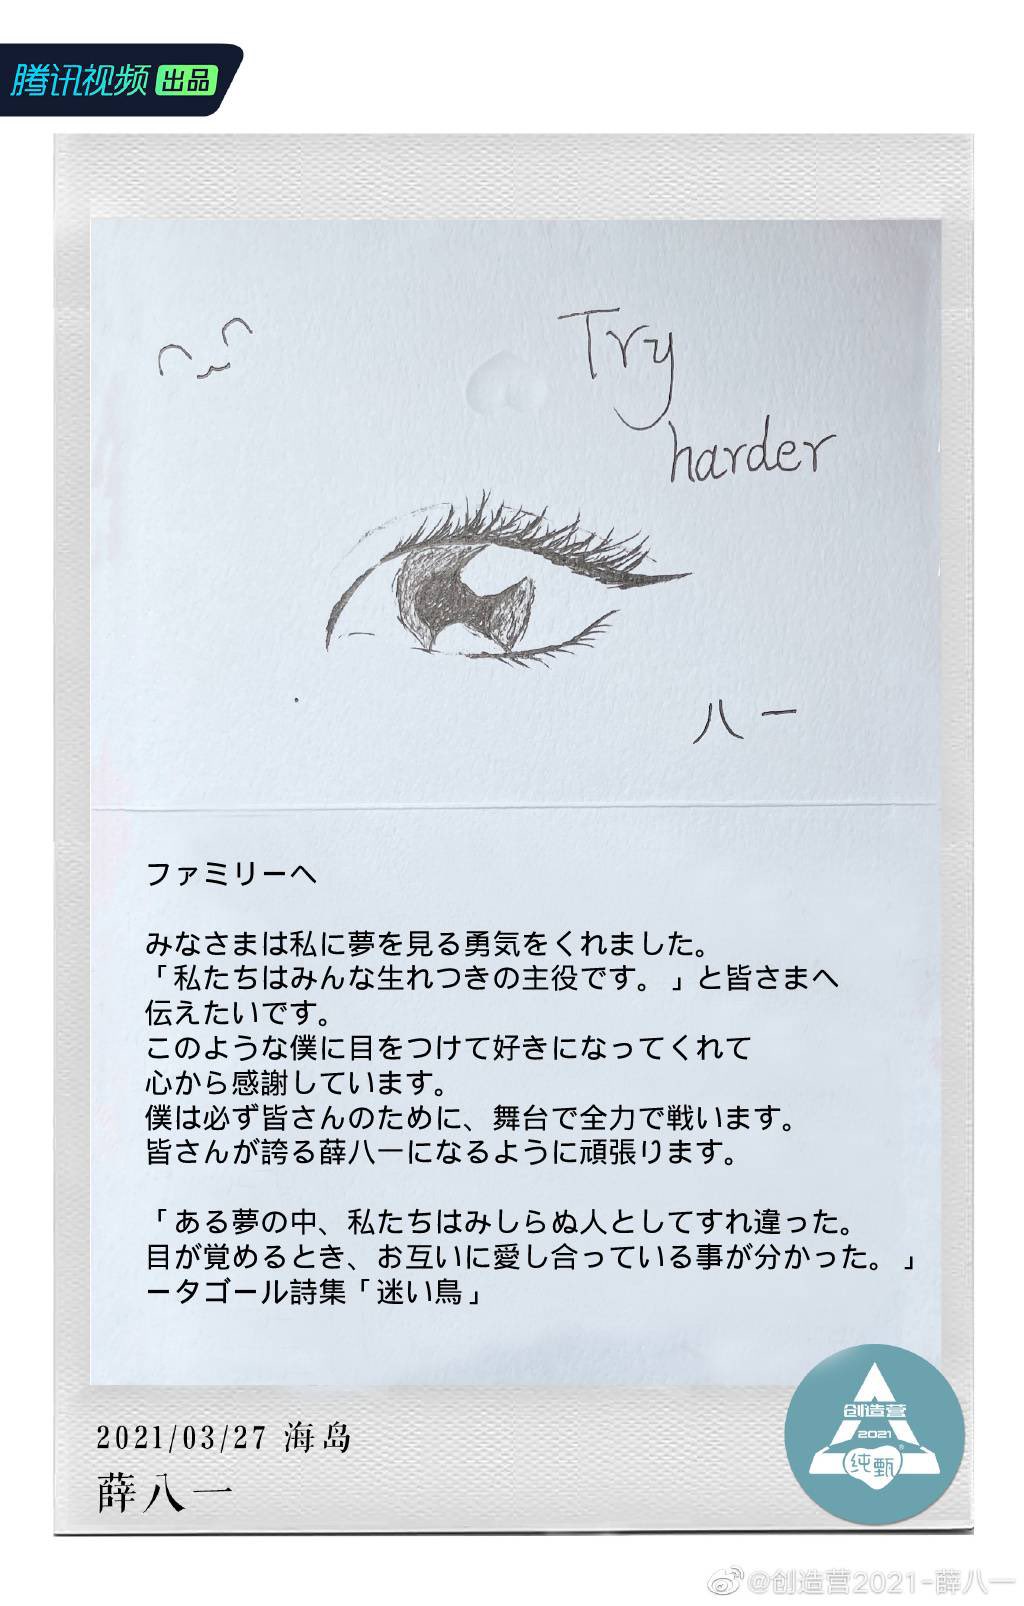 腾讯视频 出品
Try
harder
八一
ファミリーへ
みなさまは私に夢を見る勇気をくれました。
「私たちはみんな生れつきの主役です。」と皆さまへ
伝えたいです。
このような僕に目をつけて好きになってくれて
心から感謝しています。
僕は必ず皆さんのために、舞台で全力で戦います。
皆さんが誇る薛八一になるように頑張ります。
「ある夢の中、私たちはみしらぬ人としてすれ違った。
目が覚めるとき、お互いに愛し合っている事が分かった。」
ータゴール詩集「迷い鳥」
2021/03/27 海岛
薛八一
创造营
2021
纯甄®
@创造营2021-薛八一